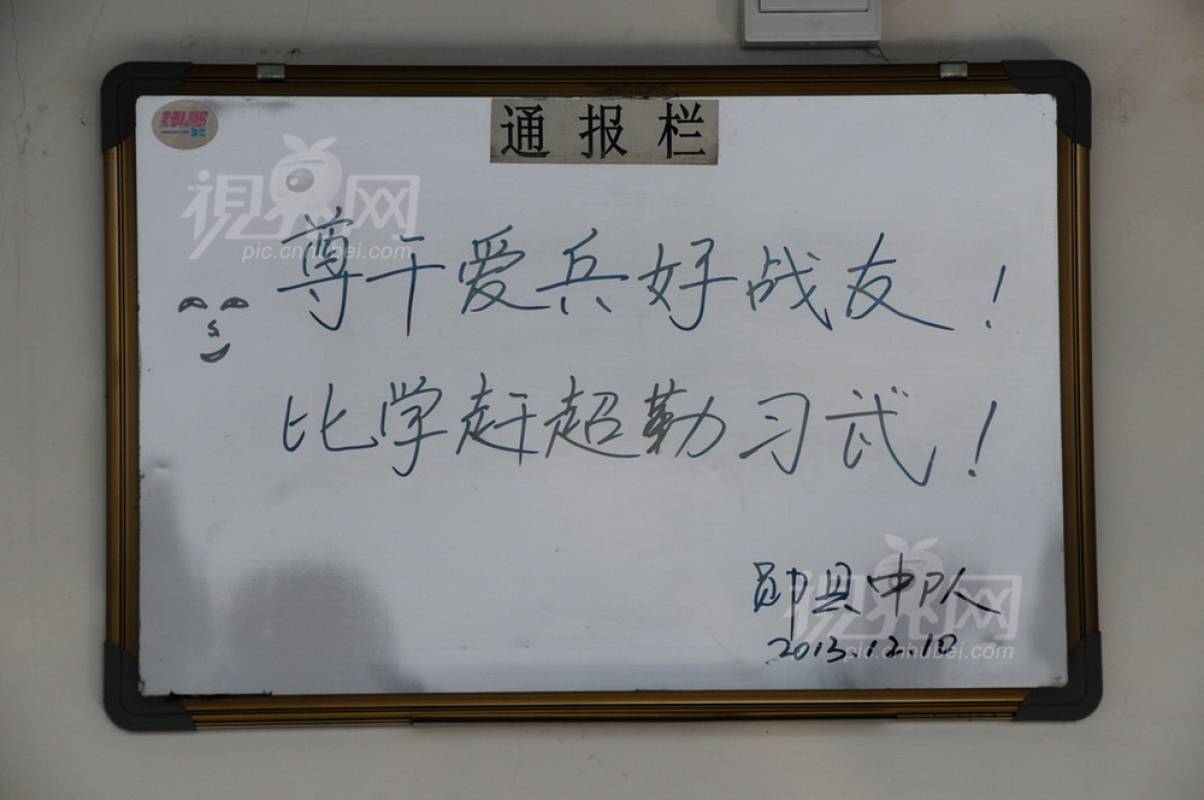 通报栏
視界网
pic.cnhubei.com
尊干爱兵好战友！
比学赶超勤习武！
郧县中队
2013.12.10
視界网
pic.cnhubei.com